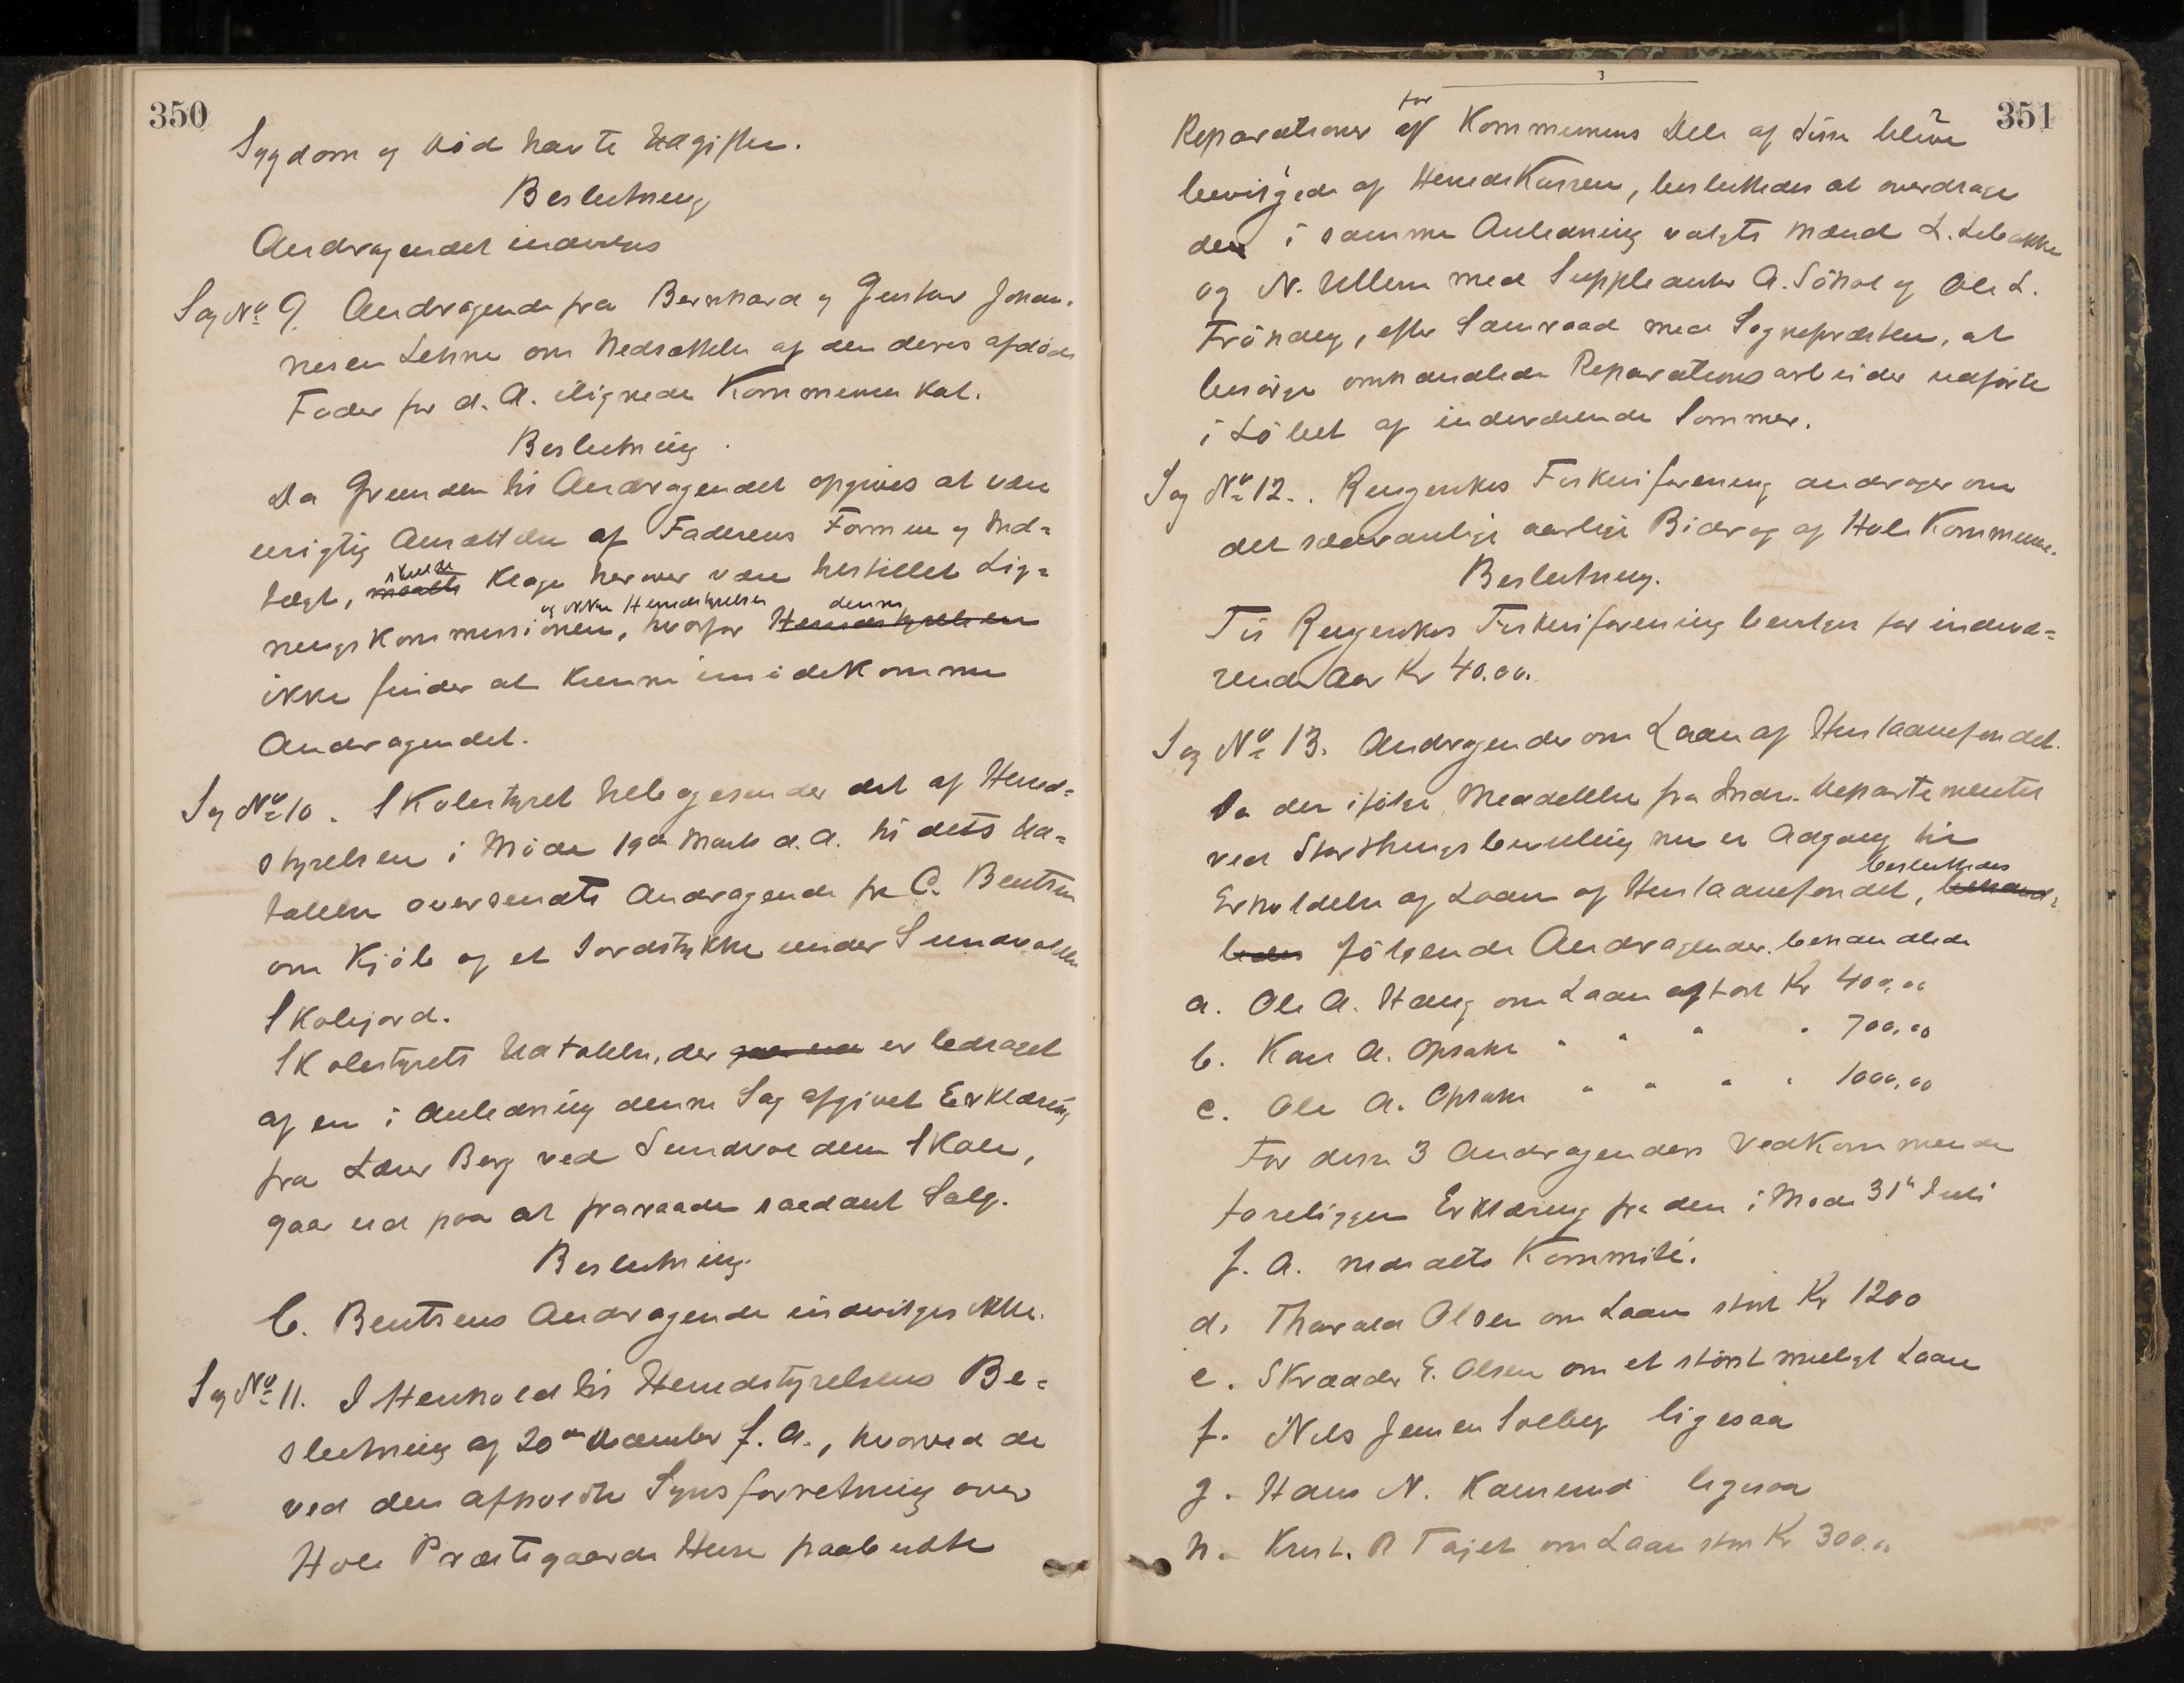 350
Sygdom og Død havte Udgifter.
Beslutning
Andragendet indvilges
Sag No 9. Andragende fra Bernhard og Gustav Johan-
nesen Lehne om Nedsættelse af den deres afdøde
Fader for d. A. ilignede Kommuneskat.
Beslutning.
Da Grunden til Andragendet opgives at være
urigtig Ansættelse af Faderens Formue og Ind-
tægt, skulde Klage herover være indstillet Lig-
ningskommissionen, og ikke Herredsstyrelsen hvorfor denne Herredsstyrelsen
ikke finder at kunne imødekomme
Andragendet.
Sag No 10. Skolestyret tilbagesender det af Herred-
styrelsen i Møde 19de Marts d. A. til dets Ud-
talelse oversendte Andragende fra C. Bentsen
om Kjøb af et Jordstykke under Sundvolden
Skolejord.
Skolestyrets Udtalelse, der er ledsaget
af en i Anledning denne Sag afgivet Erklæring
fra Lærer Berg ved Sundvolden Skole,
gaar ud paa at fraraade saadant Salg.
Beslutning.
C. Bentsens Andragende indvilges ikke.
Sag No 11. I Henhold til Herredstyrelsens Be-
slutning af 20de December f. A., hvorved de
ved den afholdte Synsforretning over
Hole Præstegaards Huse paabudte
351
Reparationer for Kommunens Dele af disse bleve
bevilgede af Herredskassen, besluttedes at overdrage
de i samme Anledning valgte Mænd L. Lebakke
og N. Ullern med Suppleanter A. Sönsl og Ole L.
Frøhaug, efter Samraad med Sognepræsten, at
besørge omhandlede Reparationsarbeider udførte
i Løbet af indeværende Sommer.
Sag No 12. Ringerikes Fiskeriforening andrager om
det sædvanlige aarlige Bidrag af Hole Kommune.
Beslutning.
Til Ringerikes Fiskeriforening bevilges for indevæ-
rende Aar Kr 40.00.
Sag No 13. Andragender om Laan af Huslaanefondet.
Da der ifølge Meddelelse fra Indre-Departementet
ved Storthingsbevilling nu er Adgang til
Erholdelse af Laan af Huslaanefondet, besluttedes behand-
ledes følgende Andragender behandlede
a. Ole A. Haug om Laan stort Kr 400,00
b. Karl A. Opsahl " " " " 700,00
c. Ole A. Opsahl " " " " 1000,00
For disse 3 Andragenders Vedkommende
foreligger Erklæring fra den i Møde 31te Juli
f. A. nedsatte Kommité.
d. Tharald Olsen om Laan stort Kr 1200
e. Skrædder E. Olsen om et størst muligt Laan
f. Nils Jensen Solberg ligesaa
g. Hans N. ligesaa
h. Krist. R Tajet om Laan stort Kr 300.00